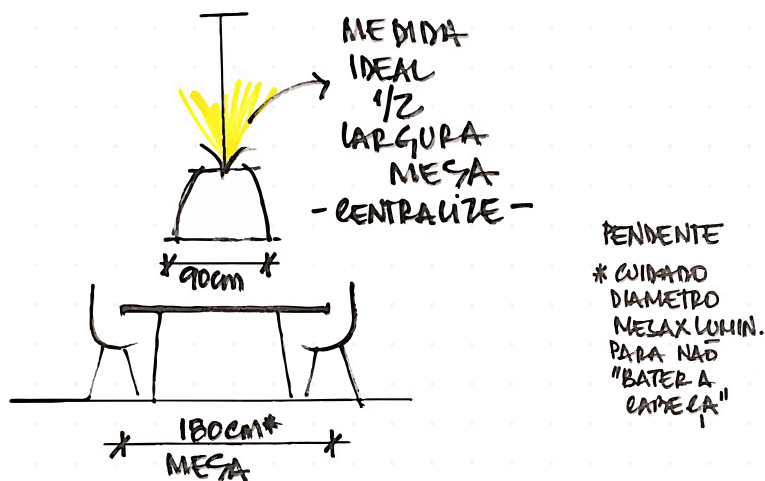 MEDIDA
IDEAL
1/2
LARGURA
MESA
- CENTRALIZE -
90cm
180cm*
MESA
PENDENTE
* CUIDADO
DIAMETRO
MESA X LUMIN.
PARA NÃO
"BATER A
CABEÇA"